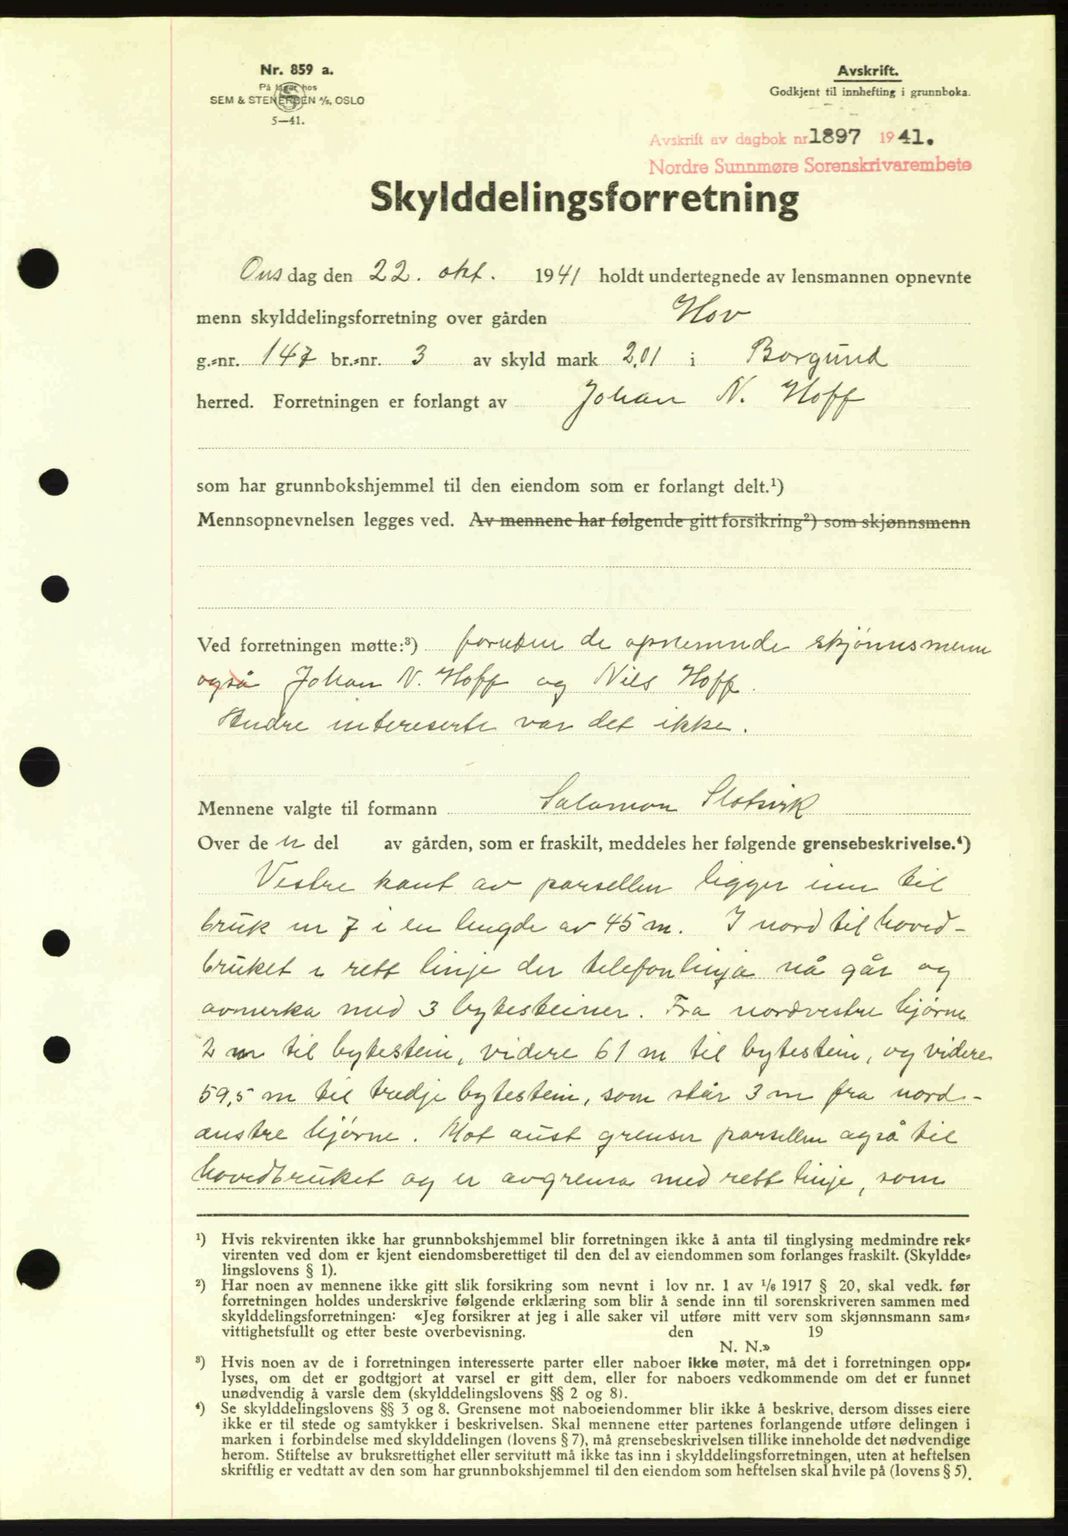 Nr. 859 a.
På lager hos
SEM & STENERSEN A/S, OSLO
5—41.
Avskrift.
Godkjent til innhefting i grunnboka.
Avskrift av dagbok nr 1897 1941.
Nordre Sunnmøre Sorenskrivarembete
Skylddelingsforretning
Onsdag den 22. okt. 1941 holdt undertegnede av lensmannen opnevnte
menn skylddelingsforretning over gården Hov
g.-nr. 147 br.-nr. 3 av skyld mark 2,01 i Borgund
herred. Forretningen er forlangt av Johan N. Hoff
som har grunnbokshjemmel til den eiendom som er forlangt delt.¹)
Mennsopnevnelsen legges ved. Av mennene har følgende gitt forsikring²) som skjønnsmenn
Ved forretningen møtte:³) foruten de opnemnde skjønnsmenn
også Johan N. Hoff og Nils Hoff.
Andre intereserte var det ikke.
Mennene valgte til formann Salamon Slotsvik
Over de n del av gården, som er fraskilt, meddeles her følgende grensebeskrivelse.⁴)
Vestre kant av parsellen ligger inn til
bruk nr 7 i en lengde av 45 m. I nord til hoved-
bruket i rett linje der telefonlinja nå går og
avmerka med 3 bytesteiner. Fra nordvestre hjørne
2 m til bytestein, videre 61 m til bytestein, og videre
59,5 m til tredje bytestein, som står 3 m fra nord-
austre hjørne. Mot aust grenser parsellen også til
hovedbruket og er avgrensa med rett linje, som
¹) Hvis rekvirenten ikke har grunnbokshjemmel blir forretningen ikke å anta til tinglysing medmindre rek-
virenten ved dom er kjent eiendomsberettiget til den del av eiendommen som forlanges fraskilt. (Skyldde-
lingslovens § 1).
²) Har noen av mennene ikke gitt slik forsikring som nevnt i lov nr. 1 av 1/6 1917 § 20, skal vedk. før
forretningen holdes underskrive følgende erklæring som blir å sende inn til sorenskriveren sammen med
skylddelingsforretningen: «Jeg forsikrer at jeg i alle saker vil utføre mitt verv som skjønnsmann sam-
vittighetsfullt og etter beste overbevisning. den 19
N. N.»
³) Hvis noen av de i forretningen interesserte parter eller naboer ikke møter, må det i forretningen opp-
lyses, om det er godtgjort at varsel er gitt dem, eller for naboers vedkommende om det er funnet
unødvendig å varsle dem (skylddelingslovens §§ 2 og 8).
⁴) Se skylddelingslovens §§ 3 og 8. Grensene mot naboeiendommer blir ikke å beskrive, dersom disses eiere
ikke er til stede og samtykker i beskrivelsen. Skal mennene etter partenes forlangende utføre delingen i
marken i forbindelse med skylddelingen (lovens § 7), må grensebeskrivelsen tillike inneholde det nødvendige
herom. Stiftelse av bruksrettighet eller servitutt må ikke tas inn i skylddelingsforretningen, uten at heftelsen
skriftlig er vedtatt av den som har grunnbokshjemmel til den eiendom som heftelsen skal hvile på (lovens § 5).